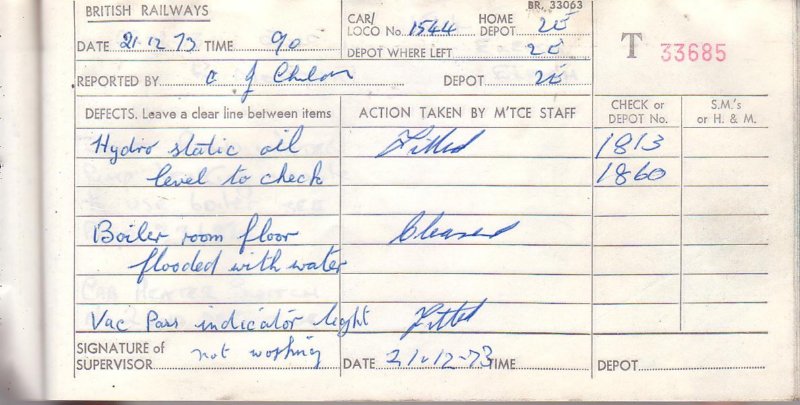 BR. 33063
BRITISH RAILWAYS
CAR/ LOCO No. 1544 HOME DEPOT 2E
DATE 21-12-73 TIME 90
DEPOT WHERE LEFT 2E
T 33685
REPORTED BY C J DEPOT 2E
DEFECTS. Leave a clear line between items ACTION TAKEN BY M'TCE STAFF CHECK or DEPOT No. S.M.'s or H. & M.
Hydro static oil Filled 1813
level to check 1860
Boiler room floor Cleaned
flooded with water
Vac Pass indicator light Fitted
SIGNATURE of SUPERVISOR not working DATE 21-12-73 TIME DEPOT